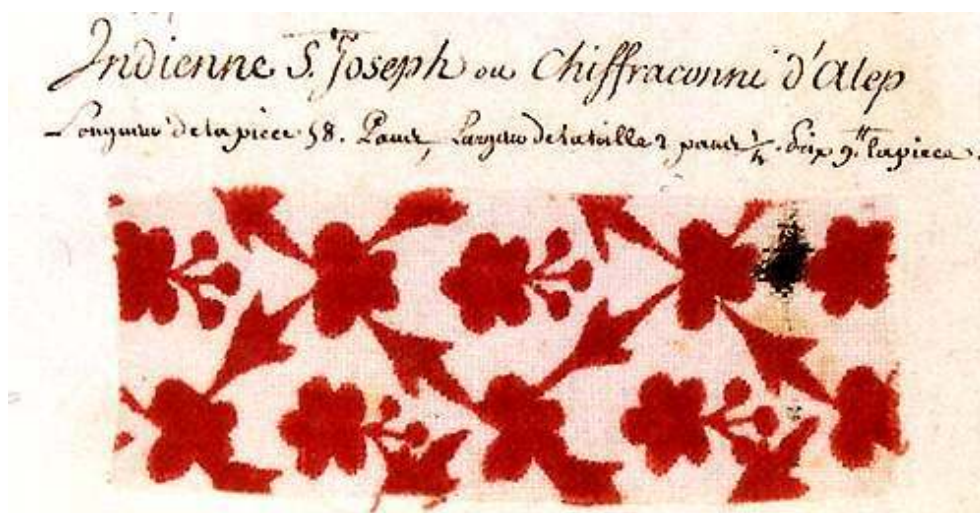 Indienne S.t Joseph ou Chiffraconni d'alep
Longueur de la piece 58. Pans, Largeur de la toille 2 pans ½. Prix 9.tt la piece.